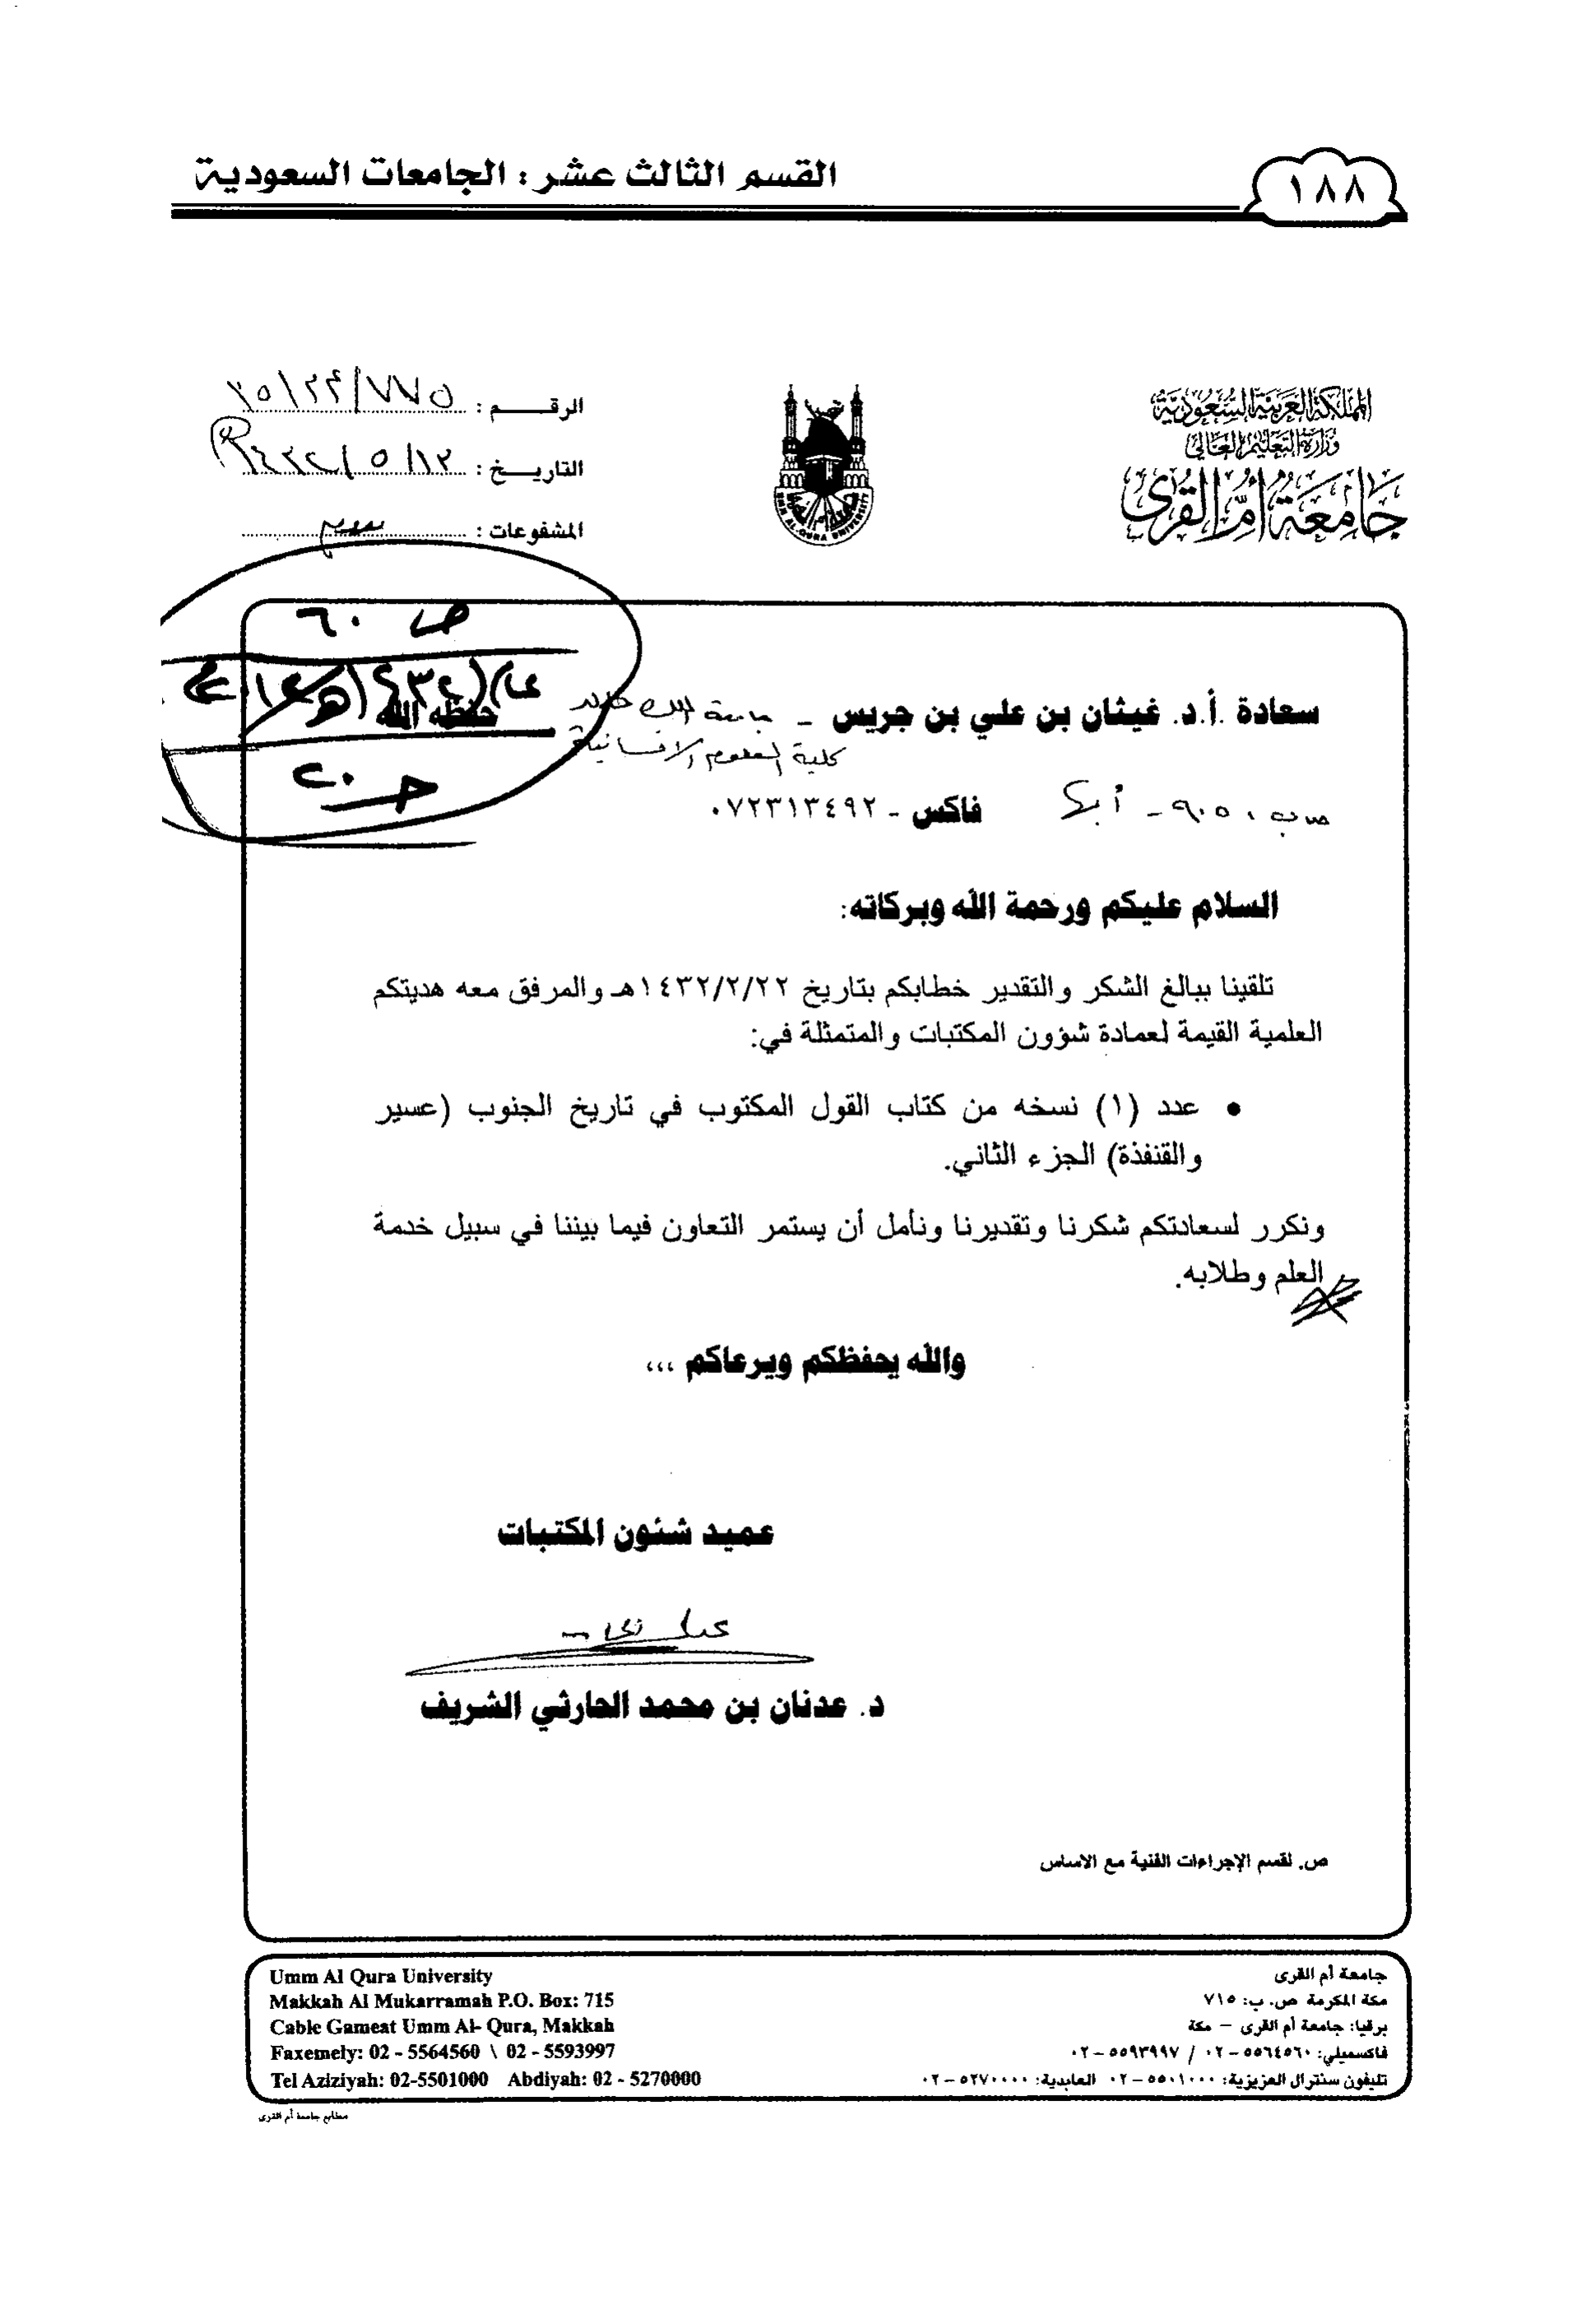 القسم الثالث عشر : الجامعات السعودية
١٨٨
المملكة العربية السعودية
وزارة التعليم العالي
جامعة أم القرى
UMM AL-QURA UNIVERSITY
الرقـــــم :
التاريـــخ : ١٢/ ٥ /١٤٣٢
المشفوعات :
ص ٦٠
عام (١٤٣٢هـ/
ج ٢٠
سعادة .أ.د. غيثان بن علي بن جريس - جامعة الملك خالد حفظه الله
كلية العلوم الإنسانية
أبها فاكس - ٠٧٢٣١٣٤٩٢
السلام عليكم ورحمة الله وبركاته:
تلقينا ببالغ الشكر والتقدير خطابكم بتاريخ ١٤٣٢/٢/٢٢هـ والمرفق معه هديتكم
العلمية القيمة لعمادة شؤون المكتبات والمتمثلة في:
• عدد (١) نسخه من كتاب القول المكتوب في تاريخ الجنوب (عسير
والقنفذة) الجزء الثاني.
ونكرر لسعادتكم شكرنا وتقديرنا ونأمل أن يستمر التعاون فيما بيننا في سبيل خدمة
العلم وطلابه.
والله يحفظكم ويرعاكم ...
عميد شئون المكتبات
د. عدنان بن محمد الحارثي الشريف
ص. لقسم الإجراءات الفنية مع الاساس
جامعة أم القرى
مكة المكرمة ص. ب: ٧١٥
برقيا: جامعة أم القرى – مكة
فاكسميلي: ٥٥٦٤٥٦٠–٠٢ / ٥٥٩٣٩٩٧–٠٢
تليفون سنترال العزيزية: ٥٥٠١٠٠٠–٠٢ العابدية: ٥٢٧٠٠٠٠–٠٢
Umm Al Qura University
Makkah Al Mukarramah P.O. Box: 715
Cable Gameat Umm Al- Qura, Makkah
Faxemely: 02 - 5564560 \ 02 - 5593997
Tel Aziziyah: 02-5501000 Abdiyah: 02 - 5270000
مطابع جامعة أم القرى